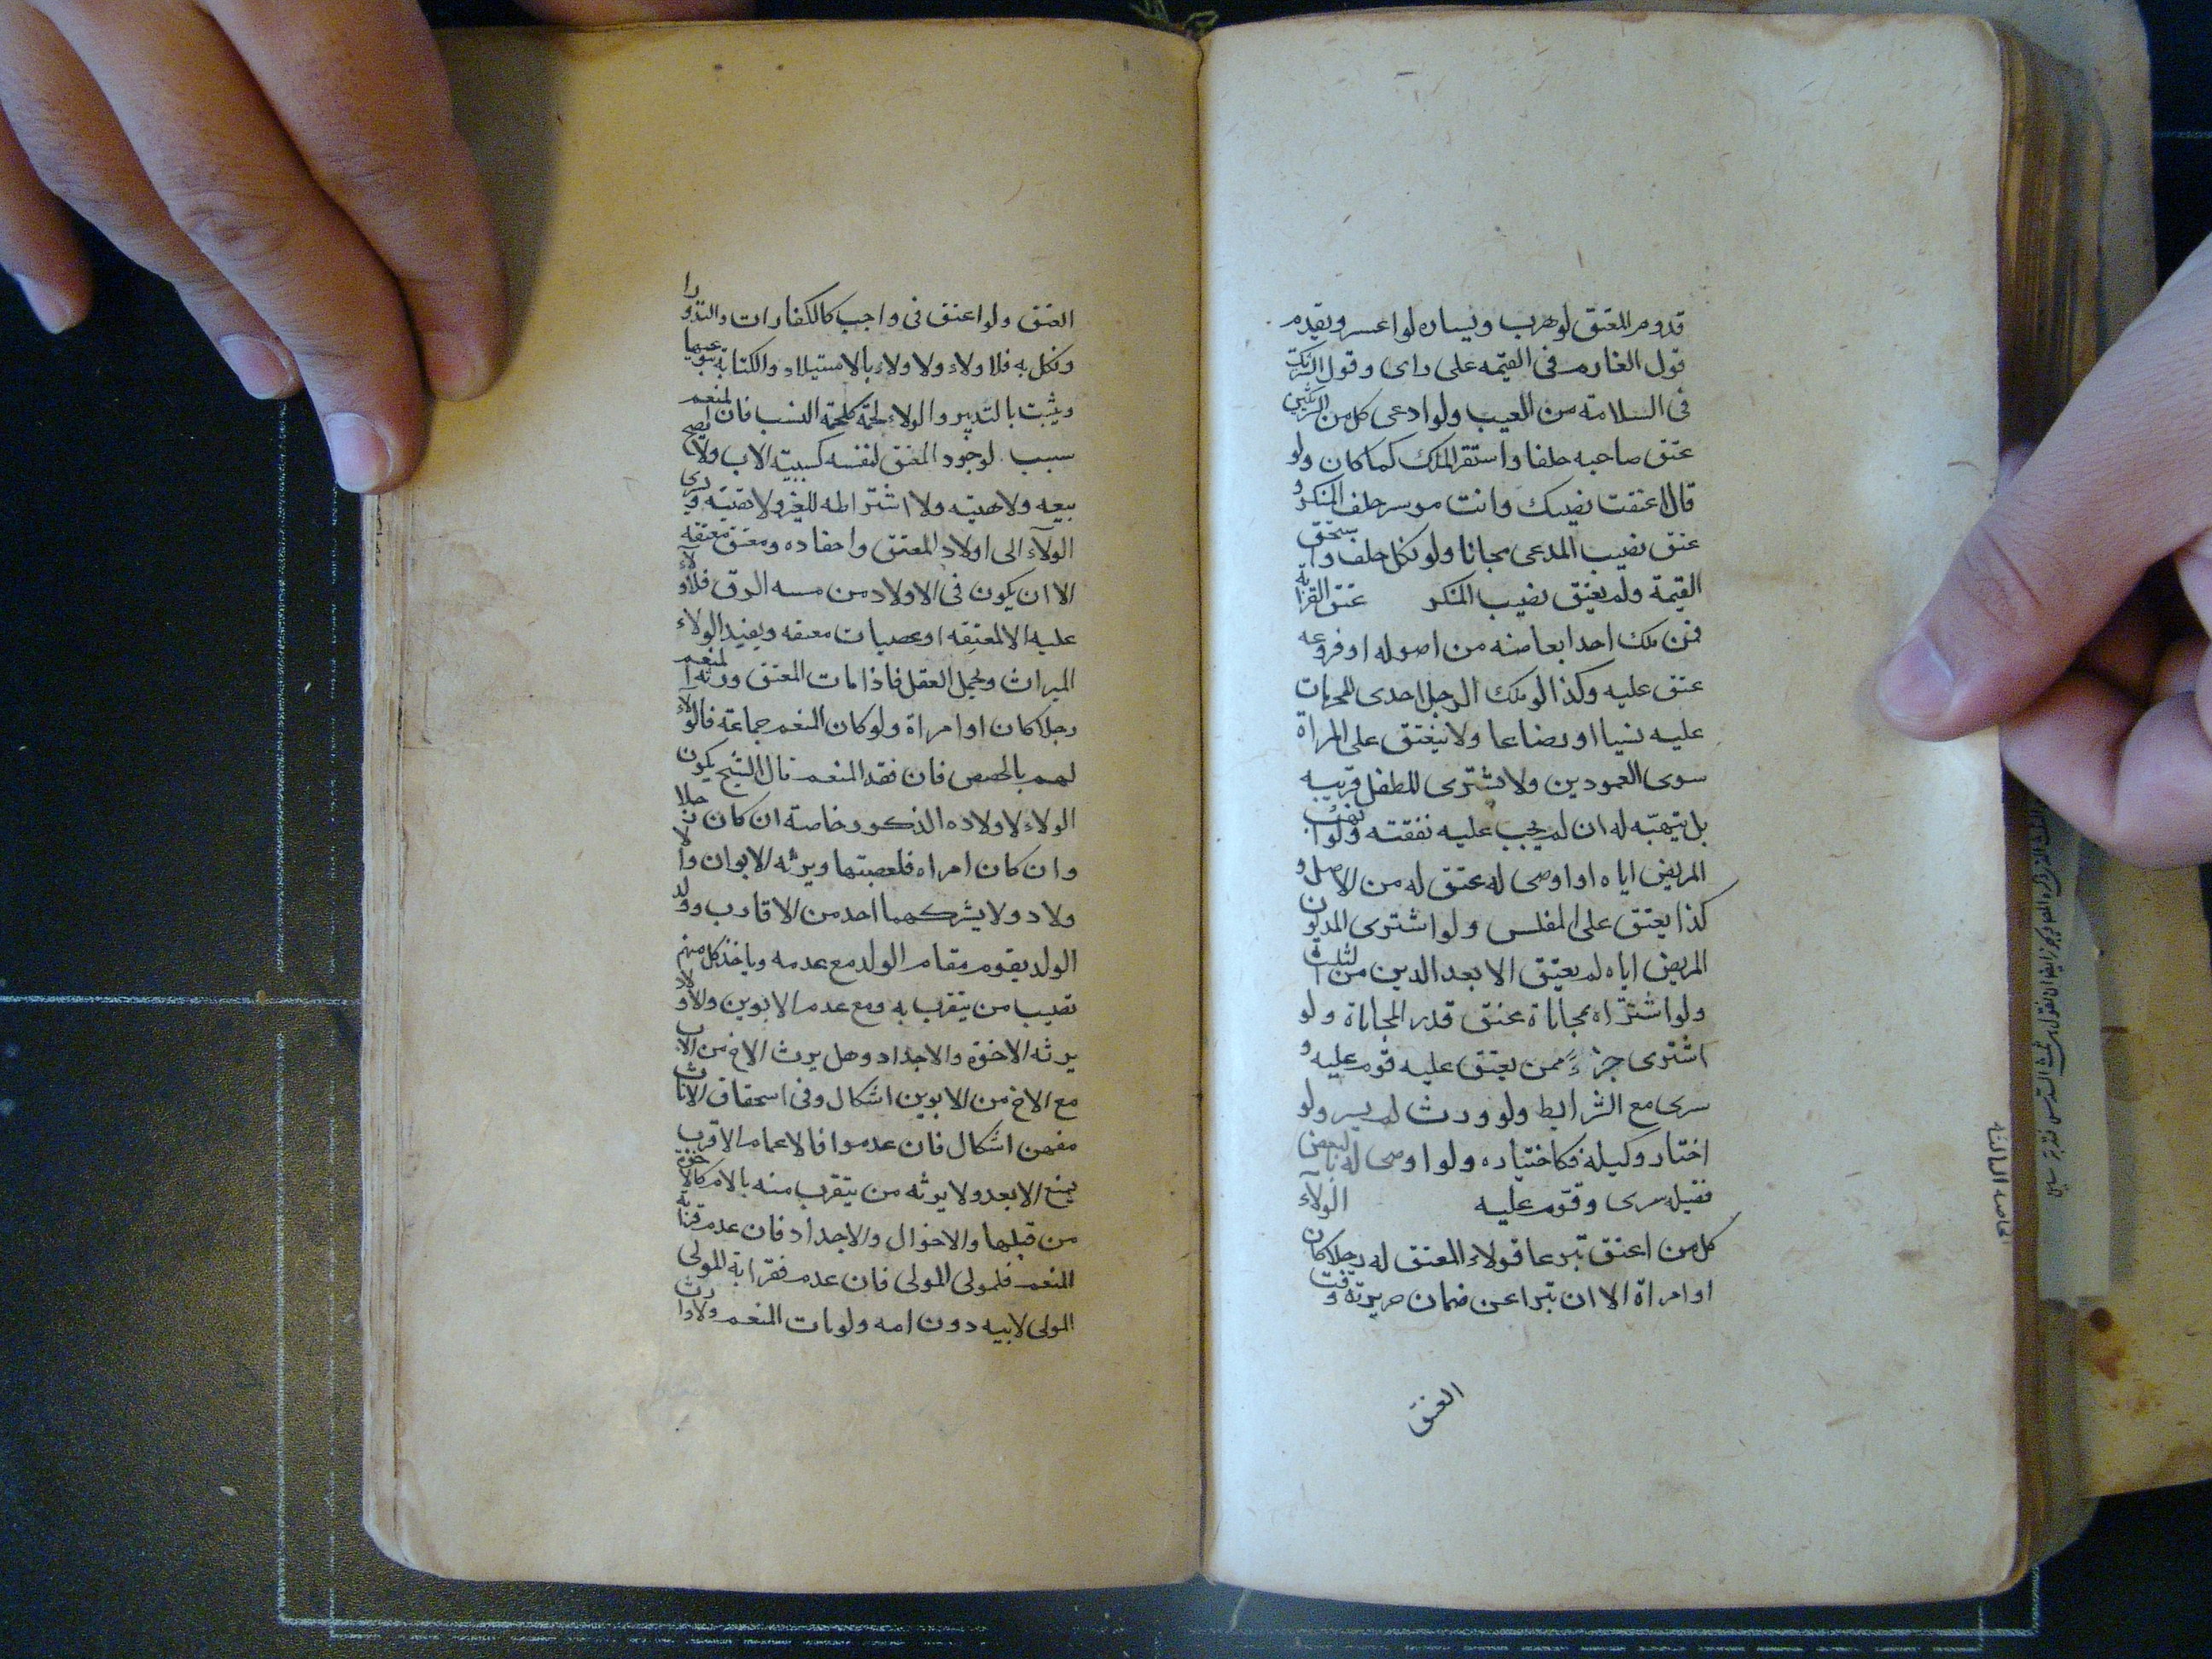 قدوم المعتق لو هرب ويساره لو اعسر ويقدم
قول الغارم فى القيمه على راى وقول الشريك
فى السلامة من العيب ولو ادعى كل من الشريكين
عتق صاحبه حلفا واستقر الملك كما كان ولو
قال اعتقت نصيبك وانت موسر حلف المنكر و
عتق نصيب المدعى مجانا ولو نكل حلف واستحق
القيمة ولم يعتق نصيب المنكر عتق القرابة
فمن ملك احد ابعاضه من اصوله او فروعه
عتق عليه وكذا لو ملك الرجل احدى المحرمات
عليه نسبا او رضاعا ولا ينعتق على المراة
سوى العمودين ولا يشترى للطفل قريبه
بل يتهبه له ان لم يجب عليه نفقته ولو اتهب
المريض اياه او اوصى له عتق له من الاصل و
كذا يعتق على المفلس ولو اشترى المديون
المريض اياه لم يعتق الا بعد الدين من الثلث
ولو اشتراه محاباة عتق قدر المحاباة ولو
اشترى جزءً ممن يعتق عليه قوم عليه و
سرى مع الشرايط ولو ورث لم يسر ولو
اختار وكيله فكاختياره ولو اوصى له بالبعض
فقبله سرى وقوم عليه الولآء
كل من اعتق تبرعا فولاء المعتق له رجلا كان
او امراة الا ان تبرا عن ضمان جريرته وقت
العتق
العتق ولو اعتق فى واجب كالكفارات والنذورا
ونكل به فلا ولاء ولا ولاء بالاستيلاد والكتابة بنوعيها
ويثبت بالتدبير والولاء لحمة كلحمة النسب فان المنعم
سبب لوجود المعتق لنفسه كسببية الاب ولا يصح
بيعه ولا هبته ولا اشتراطه للغير ولا تقصيه ويسرى
الولآء الى اولاد المعتق واحفاده ومعتق معتقه
الا ان يكون فى الاولاد من مسه الرق فلا ولآء
عليه الا لمعتقه او عصبات معتقه ويفيد الولاء
الميراث وتحمل العقل فاذا مات المعتق ورثه المنعم
رجلا كان او امراة ولو كان المنعم جماعة فالولآء
لهم بالحصص فان فقد المنعم قال الشيخ يكون
الولاء لاولاده الذكور خاصة ان كان رجلا
وان كان امراه فلعصبتها ويرثه الابوان والا
ولاد ولا يشركهما احد من الاقارب وولد
الولد يقوم مقام الولد مع عدمه وياخذ كل منهم
نصيب من يتقرب به ومع عدم الابوين والاولاد
يرثه الاخوة والاجداد وهل يرث الاخ من الاب
مع الاخ من الابوين اشكال وفى استحقاق الاناث
منهن اشكال فان عدموا فالاعمام الاقرب
يمنع الابعد ولا يرثه من يتقرب منه بالام كالاخوة
من قبلها والاخوال والاجداد فان عدم قرابة
المنعم فلمولى المولى فان عدم فقرابة المولى
المولى لابيه دون امه ولو مات المنعم ولا وارث